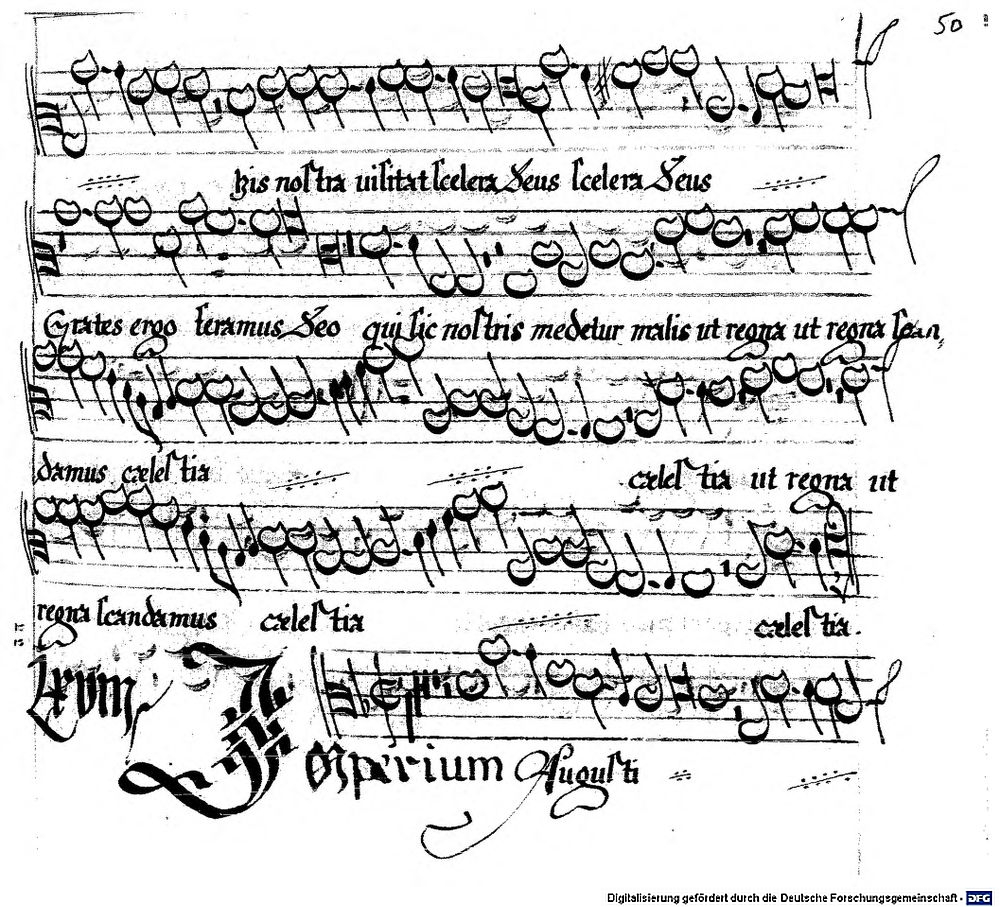 50
his noſtra uiſitat ſcelera Deus ſcelera Deus
Grates ergo feramus Deo qui ſic noſtris medetur malis ut regna ut regna ſcan,
damus cæleſtia cæleſtia ut regna ut
regna ſcandamus cæleſtia cæleſtia.
Lxvm Imperium Auguſti
Digitalisierung gefördert durch die Deutsche Forschungsgemeinschaft - DFG